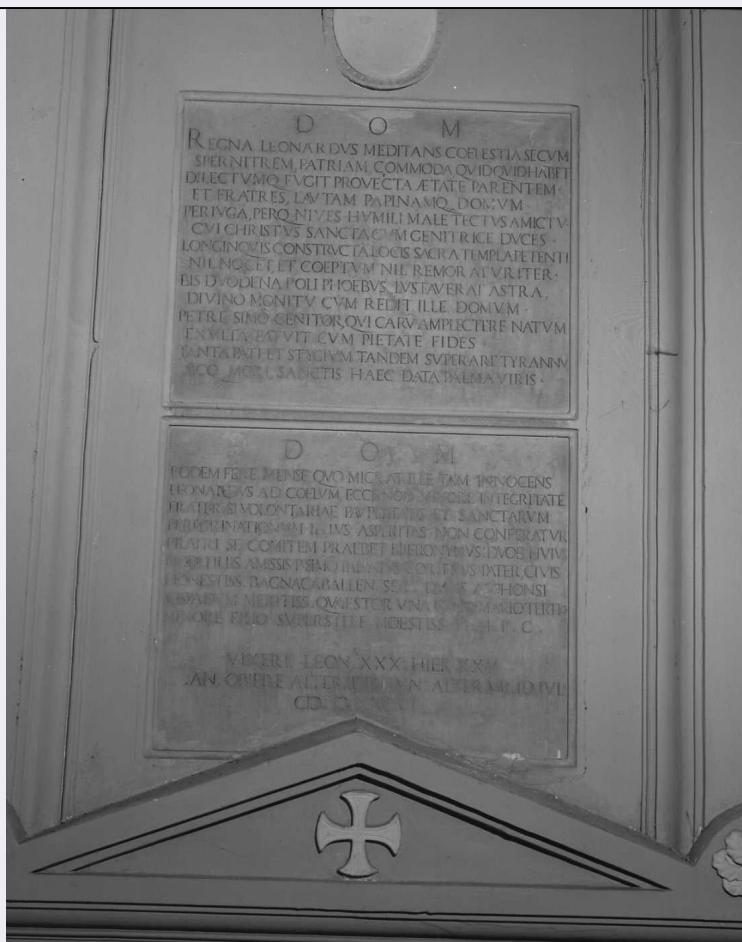 D O M
REGNA LEONARDVS MEDITANS COELESTIA SECVM
SPERNIT REM, PATRIAM, COMMODA QVIDQVID HABET
DILECTVMQ FVGIT PROVECTA ÆTATE PARENTEM ·
ET FRATRES, LAVTAM PAPINAMQ DOMVM ·
PER IVGA, PERQ NIVES HVMILI MALE TECTVS AMICTV
CVI CHRISTVS SANCTA CVM GENITRICE DVCES ·
LONGINQVIS CONSTRVCTA LOCIS SACRA TEMPLA PETENTI
NIL NOCET, ET COEPTVM NIL REMORATVR ITER ·
BIS DVODENA POLI PHOEBVS LVSTAVERAT ASTRA,
DIVINO MONITV CVM REDIT ILLE DOMVM ·
PETRE SIMO GENITOR, QVI CARV AMPLECTERE NATVM
EXVLTA PATVIT CVM PIETATE FIDES ·
TANTA PATI ET STYGIVM TANDEM SVPERARE TYRANNV
SICQ MORI, SANCTIS HAEC DATA PALMA VIRIS ·
D O M
EODEM FERE MENSE QVO MIGRAT ILLE TAM INNOCENS
LEONARDVS AD COELVM ECCE NON INTEGRITATE
FRATER SI VOLONTARIAE ET SANCTARVM
PEREGRINATIONVM ILLIVS ASPERITAS NON CONFERATVR
FRATRI SE COMITEM PRAEBET HIERONYMVS: DVOB HVIVS
FILIIS AMISSIS P SIMO PATER, CIVIS
HONESTISS. BAGNACABALLEN. ALPHONSI
MERITISS. QVAESTOR VNA MARIO TERTIO
MINORE FILIO SVPERSTITE MOESTISS P. C.
VIXERE LEON. XXX. HIER.
AN. OBIERE ALTER ALTER IVL